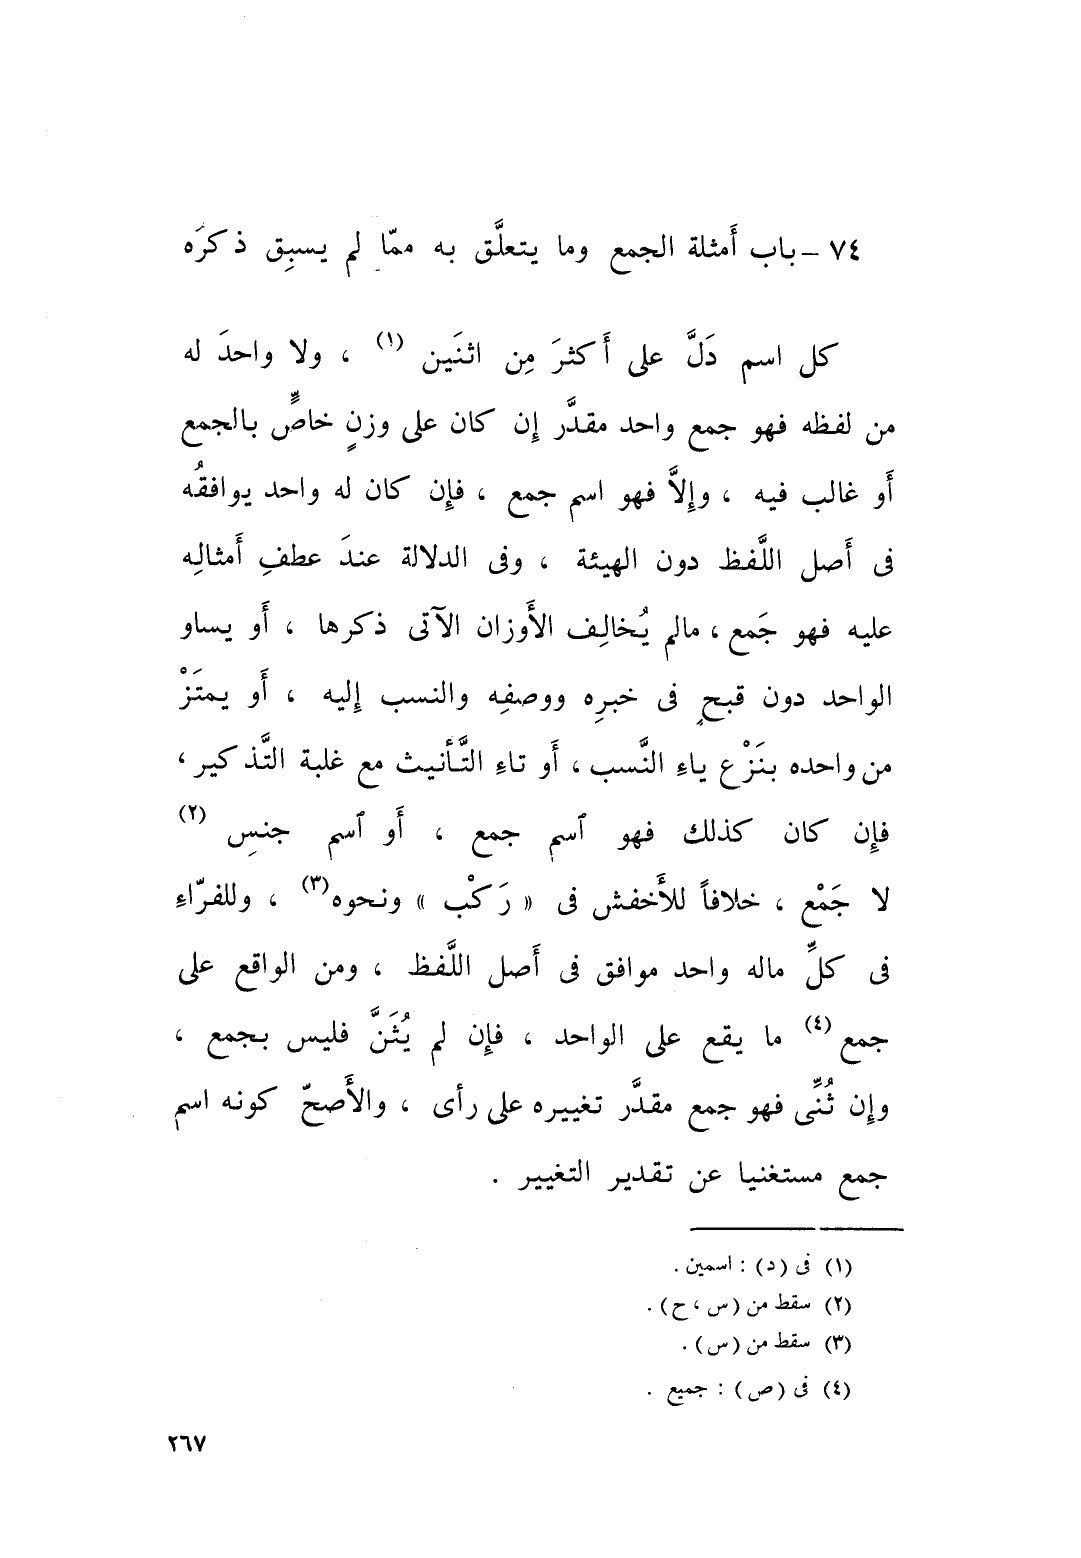 ٧٤ – باب أَمثلة الجمع وما يتعلَّق به ممّا لم يسبِق ذكرَه
كل اسم دَلَّ على أَكثرَ مِن اثنَين (١) ، ولا واحدَ له
من لفظه فهو جمع واحد مقدَّر إِن كان على وزنٍ خاصٍّ بالجمع
أَو غالب فيه ، وإِلاَّ فهو اسم جمع ، فإِن كان له واحد يوافقُه
فى أَصل اللَّفظ دون الهيئة ، وفى الدلالة عندَ عطفِ أَمثالِه
عليه فهو جَمع ، مالم يُخالِف الأَوزان الآتى ذكرها ، أَو يساو
الواحد دون قبحٍ فى خبرِه ووصفِه والنسب إِليه ، أَو يمتَزْ
من واحده بنَزْع ياءِ النَّسب ، أَو تاءِ التَّأنيث مع غلبة التَّذكير ،
فإِن كان كذلك فهو ٱسم جمع ، أَو ٱسم جنسِ (٢)
لا جَمْع ، خلافاً للأَخفش فى « رَكْب » ونحوه(٣) ، وللفرّاءِ
فى كلِّ ماله واحد موافق فى أَصل اللَّفظ ، ومن الواقع على
جمع(٤) ما يقع على الواحد ، فإِن لم يُثَنَّ فليس بجمع ،
وإِن ثُنِّى فهو جمع مقدَّر تغييره على رأى ، والأَصحّ كونه اسم
جمع مستغنيا عن تقدير التغيير .
(١) فى (د) : اسمين .
(٢) سقط من (س ، ح) .
(٣) سقط من (س) .
(٤) فى (ص) : جميع .
٢٦٧